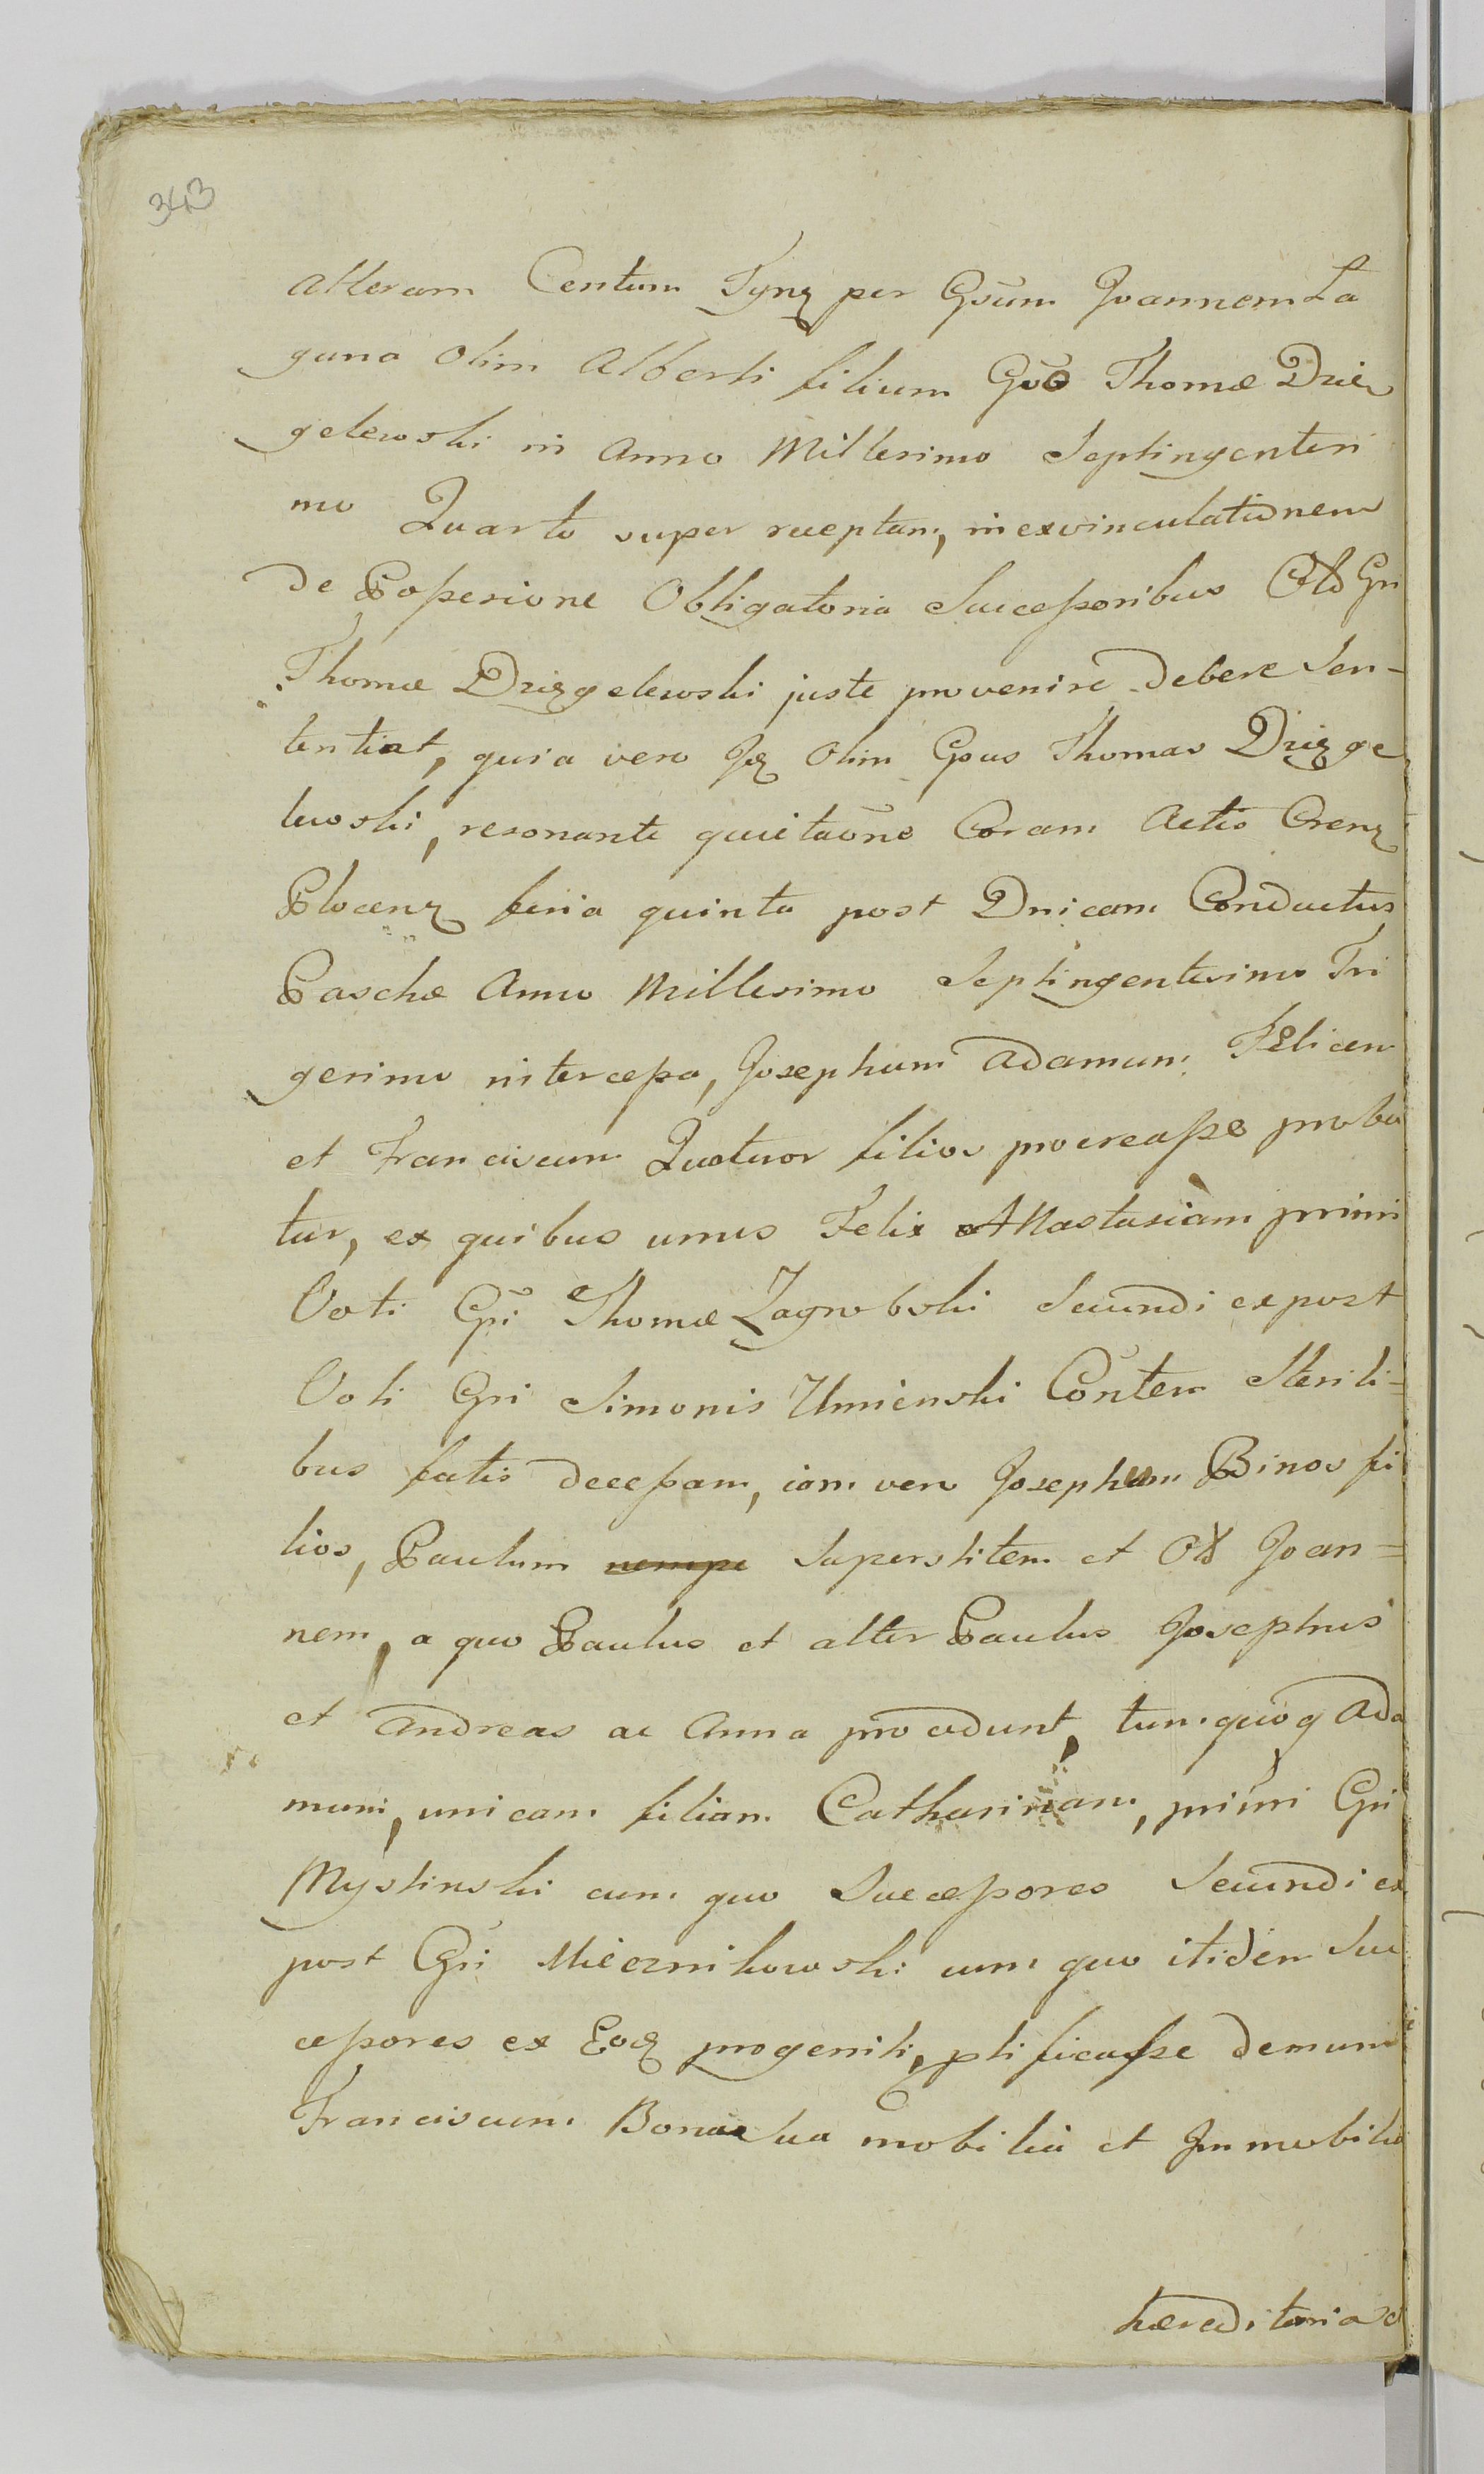 343
alteram Centum Tynz per Gsum Joannem La
guna olim Alberti filium Gso Thomæ Dzię
gelewski in Anno Millesimo Septingentesi
mo Quarto super receptam, in exvinculationem
de Possesione Obligatoria Successoribus Olb Gsi
Thomæ Dzięgelewski juste provenire debere Sen-
tentiat, quia vero Jz Olim Gsus Thomas Dzięge
lewski, resonante quietaõne Coram Actis Crenz
Plocenz feria quinta post Dnicam Conductus
Paschæ Anno Millesimo Septingentesimo Tri
gesimo intercessa, Josephum Adamum Felicem
et Franciscum Quatuor filios procreasse proba
tur, ex quibus unus Felix Anastasiam primi
Voti Gsi Thomæ Zagrobski Secundi expost
Voti Gsi Simonis Umienski Contem Sterili=
bus fatis decessam, iam vero Josephum Binos fi
lios, Paulum nempe Superstitem et Olb Joan=
nem, a quo Paulus et alter Paulus Josephus
et Andreas ac Anna procedunt, tum quoq Ada
mum, unicam filiam Catharinam, primi Gsi
Myslinski cum quo Successores Secundi ex
post Gsi Miecznikowski cum quo itidem Suc
cessores ex Eoz progeniti, plificasse demum
Franciscum Bona sua mobilia et Immobilia
hæreditaria